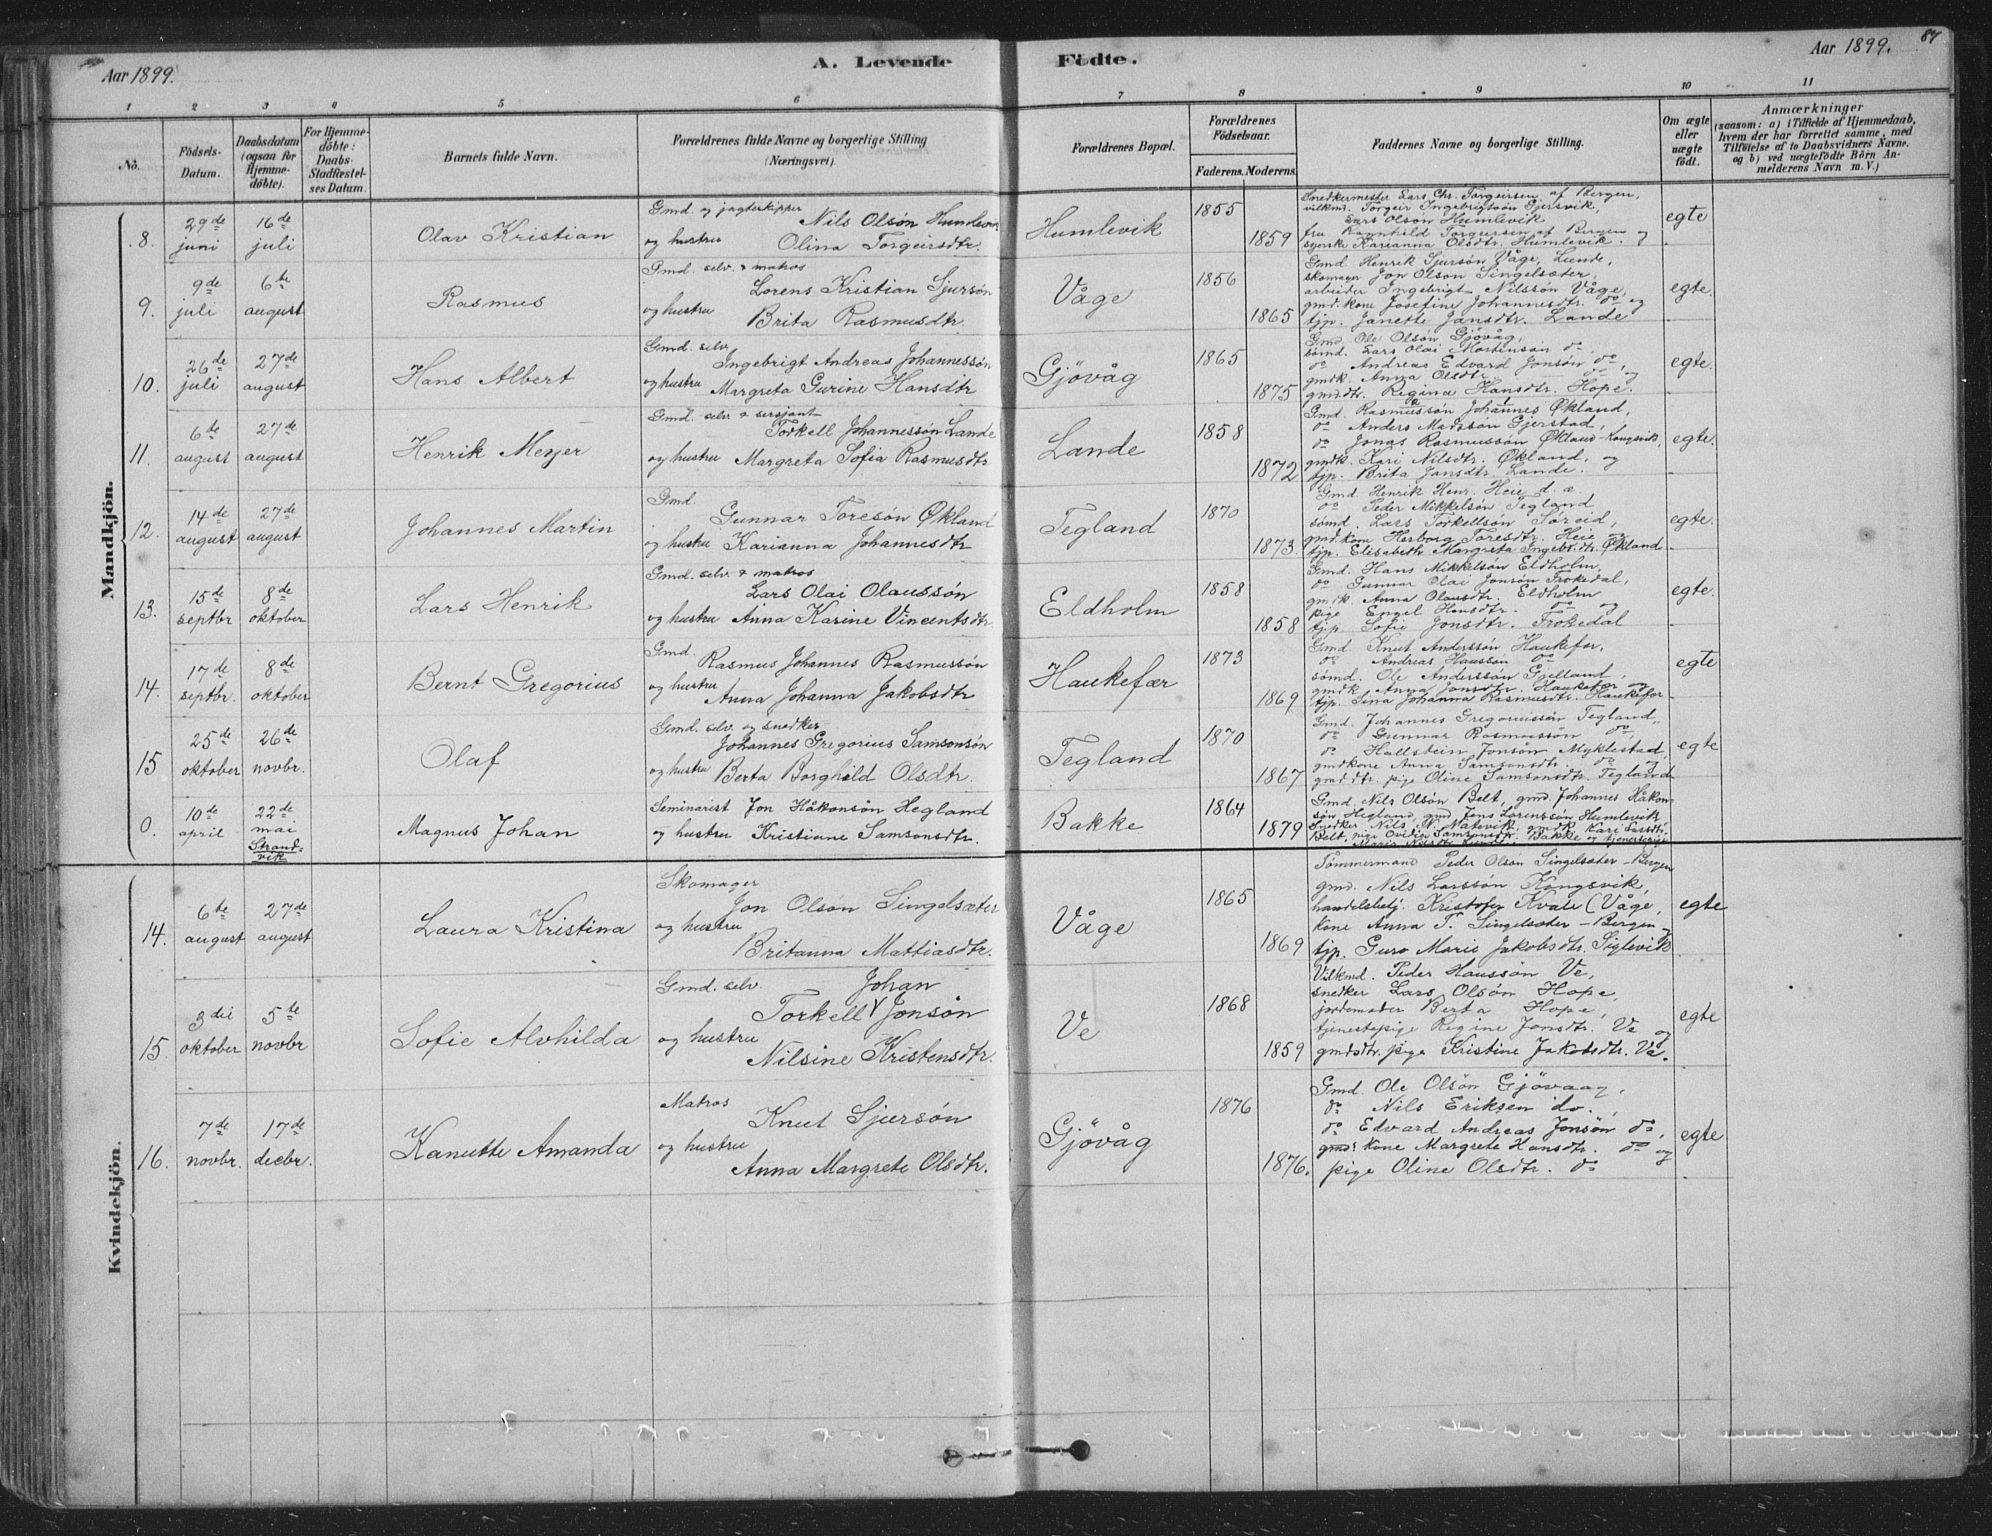 Aar 1899.
A. Levende Födte.
Aar 1899.
87
1 2 3 4 5 6 7 8 9 10 11
No.
Födsels-Datum.
Daabsdatum (ogsaa for Hjemme-döbte).
For Hjemme-döbte: Daabs-Stadfæstel-ses Datum.
Barnets fulde Navn.
Forældrenes fulde Navne og borgerlige Stilling (Næringsvei).
Forældrenes Bopæl.
Forældrenes Födselsaar.
Faderens. Moderens.
Faddernes Navne og borgerlige Stilling.
Om ægte eller uægte födt.
Anmærkninger
(saasom: a) i Tilfælde af Hjemmedaab,
hvem der har forrettet samme, med
Tilföielse af to Daabsvidners Navne.
og b) ved uægtefödte Börn An-
melderens Navn m. V.)
Mandkjön.
8. 29de juni 16de juli
Olav Kristian
Gmd og jagteskipper Nils Olsón Humlevik
og hustru Olina Torgeirsdtr.
Humlevik
1855 1859
Snedkermester Lars Chr. Torgeirsen af Bergen,
vilkmd. Torgeir Ingebrigtsön Gjersvik,
Lars Olson Humlevik
fru Ragnhild Torgersen af Bergen og
syerske Karianna Olsdtr. Humlevik.
egte
9. 9de juli 6te august
Rasmus
Gmd. selv. & matros
Lorens Kristian Sjursón
og hustru Brita Rasmusdtr.
Våge
1856 1865
Gmd. Henrik Sjursón Våge, Lunde,
skomager Jon Olson Singelsæter,
arbeider Ingebrigt Nilssón Våge,
gmd.kone Josefine Johannesdtr. do og
tjp. Janette Jansdtr. Lande
egte.
10. 26de juli 27de august
Hans Albert
Gmd. selv.
Ingebrigt Andreas Johannessón
og hustru Margreta Gurine Hansdtr
Gjövåg
1865 1875
Gmd. Ole Olsón Gjövåg,
sömd. Lars Olai Mortensön do,
do Andreas Edvard Jonsón do,
gmdk. Anna Olsdtr. do og
gmd.dtr. Regina Hansdtr. Hope.
egte.
11. 6te august 27de august
Henrik Meyer
Gmd. selv & sersjant
Torkell Johannessón Lande
og hustru Margreta Sofia Rasmusdtr
Lande
1858 1872
Gmd. Rasmussón Johannes Økland,
do Anders Madssön Gjerstad,
do Jonas Rasmussön Økland-Kongsvik,
gmdk. Kari Nilsdtr. Økland, og
tjp. Brita Jansdtr. Lande.
egte.
12. 14de august 27de august
Johannes Martin
Gmd.
Gunnar Toresón Økland
og hustru Karianna Johannesdtr
Tegland
1870 1873.
Gmd. Henrik Henr. Heie d. æ.
do Peder Mikkelsón Tegland
sömd. Lars Torkellsón Söreid,
gmd.kone Herborg Toresdtr. Heie og
tjp. Elisabeth Margreta Ingebr.dtr. Økland
egte.
13. 15de septbr 8de oktober
Lars Henrik
Gmd. selv. & matros
Lars Olai Olaussón
og hustru Anna Karine Vincentsdtr
Eldholm
1858 1858
Gmd. Hans Mikkelsón Eldholm,
do Gunnar Olai Jonsön Trokedal,
gmdk. Anna Olausdtr. Eldholm
pige Engel Hansdtr. do og
tjp. Sofie Jonsdtr. Trokedal
egte.
14. 17de septbr. 8de oktober
Bernt Gregorius
Gmd.
Rasmus Johannes Rasmussón
og hustru Anna Johanna Jakobsdtr
Haukefær
1873 1869
Gmd Knut Anderssón Haukefær,
do Andreas Hanssón do
sömd. Ole Anderssön Gjelland,
gmdk Anna Jonsdtr. Haukefær og
tjp. Sina Johanna Rasmusdtr. Haukefær
egte
15 25de oktober 26de novbr.
Olaf
Gmd. selv. og snedker
Johannes Gregorius Samsonsön
og hustru Berta Borghild Olsdtr.
Tegland
1870 1867
Gmd. Johannes Gregoriussön Tegland,
do Gunnar Rasmussön do,
do Hallstein Jonsön Myklestad
gmdkone Anna Samsonsdtr. do og
gmd.dtr. pige Oline Samsonsdtr. Tegland
egte
0. 10de april 22de mai Strandvik
Magnus Johan
Seminarist Jon Håkonsön Hegland
og hustru Kristiane Samsonsdtr.
Bakke
1864 1879
Gmd Nils Olsön Belt, gmd. Johannes Håkon-
sön Hegland, gmd Jens Lorenssön Humlevik
Snedker Nils N. Matevik, gmdk Kari Larsdtr.
Belt, pige Ovidia Samsonsdtr. Bakke og tjenestepige
Kvindekjön.
14. 6te august 27de august
Laura Kristina
Skomager
Jon Olsön Singelsæter
og hustru
Britanna Mattiasdtr.
Våge
1865 1869
Tömmermand Peder Olsen Singelsæter - Bergen
gmd. Nils Larssön Kongsvik,
handelsbetj. Kristofer Kvale (Våge,
kone Anna T. Singelsæter - Bergen og
tjp. Guro Marie Jakobsdtr. Siglevik
egte
15. 3dii oktober 5te novbr
Sofie Alvhilda
Gmd. selv. Johan
Torkell V Jonsön
og hustru
Nilsine Kristensdtr.
Ve
1868 1859
Vilkmd. Peder Hanssön Ve,
snedker Lars Olsön Hope,
jordemoder Berta Hope,
tjenestepige Regine Jonsdtr. Ve og
gmdsdtr. pige Kristine Jakobsdtr. Ve.
egte
16. 7de novbr. 17de decbr.
Kanutte Amanda
Matros
Knut Sjursön
og hustru
Anna Margrete Olsdtr.
Gjövåg
1876 1876.
Gmd Ole Olsön Gjövaag,
do Nils Eriksen do.,
do Edvard Andreas Jonsön do,
gmds kone Margrete Hansdtr. do og
pige Oline Olsdtr. do
egte